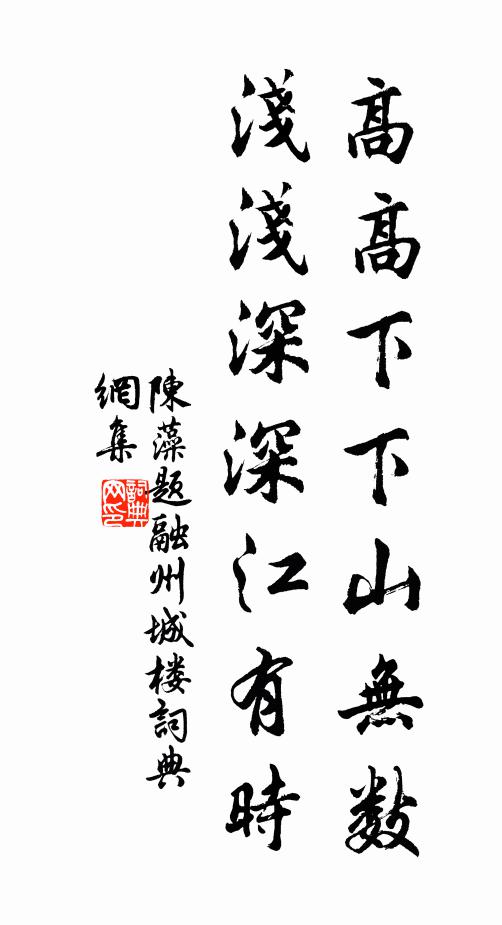 高高下下山無數
淺淺深深江有時
陳藻題融州城楼詞典
網集
詞典
网印